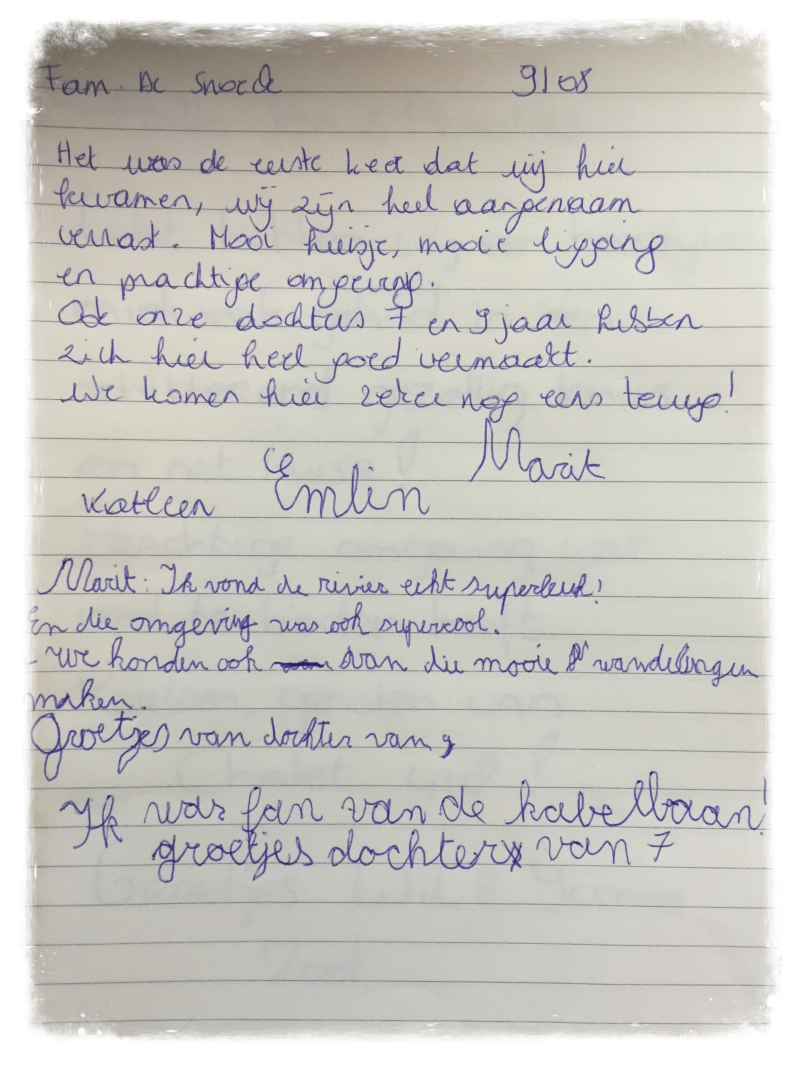 Fam. De Snoeck 9/08
Het was de eerste keer dat wij hier
kwamen, wij zijn heel aangenaam
verrast. Mooi huisje, mooie ligging
en prachtige omgeving.
Ook onze dochters 7 en 9 jaar hebben
zich hier heel goed vermaakt.
We komen hier zeker nog eens terug!
Marit
Katleen Emlin
Marit: Ik vond de rivier echt superleuk!
En die omgeving was ook supercool.
- We konden ook van die mooie wandelingen
maken.
Groetjes van dochter van 9
Ik was fan van de kabelbaan!
groetjes dochter van 7